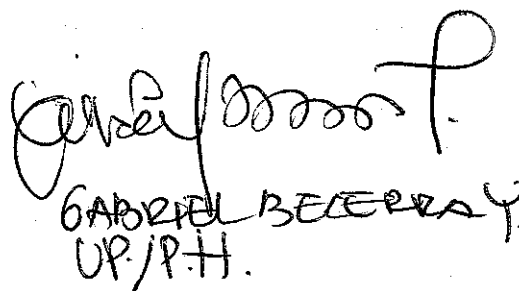 GABRIEL BECERRA Y.
UP./P.H.